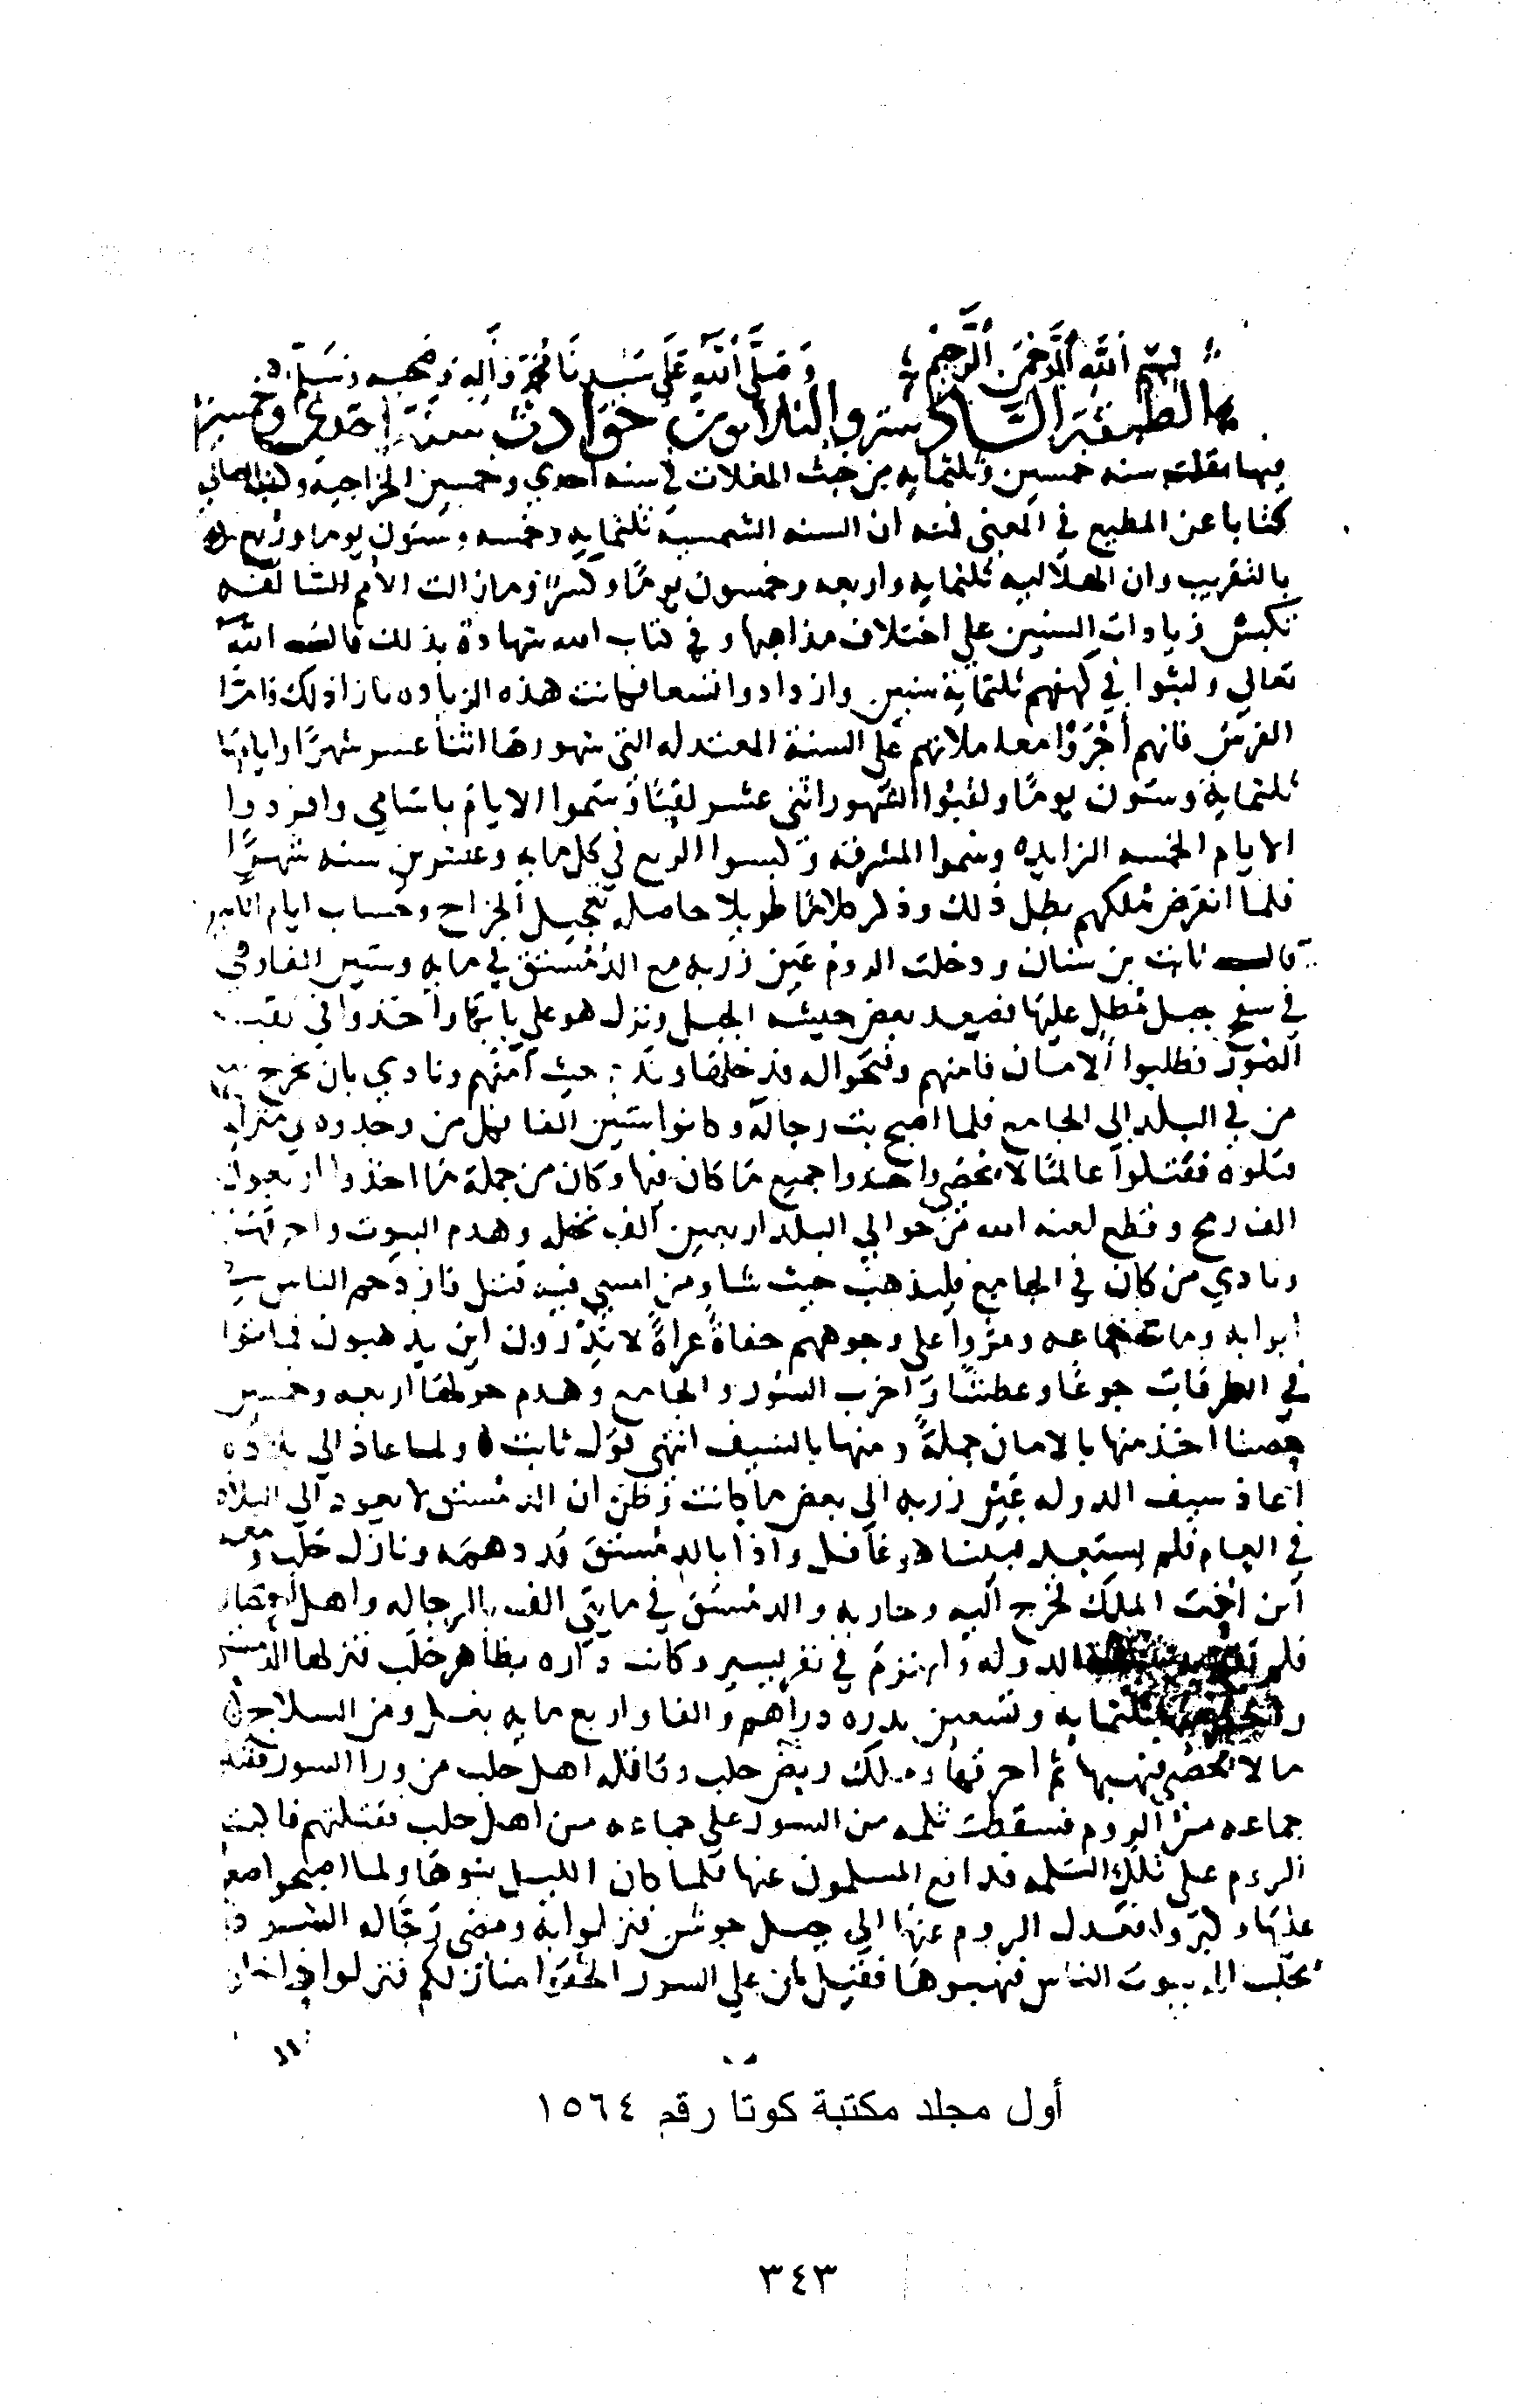 بسم الله الرحمن الرحيم وصلى الله على سيدنا محمد وآله وصحبه وسلم
الطبقة السادسة والثلاثون حوادث سنة احدى وخمسين
فيها نقلت سنه خمسين وثلثمايه من حيث المغلات الى سنه احدي وخمسين الخراجيه وكتب الصابي
كتابا عن المطيع في المعنى فمنه ان السنه الشمسيه ثلثمايه وخمسه وستون يوما وربع
بالتقريب وان الهلاليه ثلثمايه واربعه وخمسون يومًا وكسرًا وما زالت الأمم السالفه
تكبس زيادات السنين علي اختلاف مذاهبها وفي كتاب الله شهادة بذلك قال الله
تعالي ولبثوا في كهفهم ثلثماية سنين وازدادوا تسعا فكانت هذه الزياده بازا ذلك فامّا
الفرس فانهم أجْرَوْا معاملاتهم على السنة المعتدله التي شهورها اثنا عشر شهرًا وايامها
ثلثماية وستون يومًا ولقبوا الشهور اثنى عشر لقبًا وسموا الايام باسامي وافردوا
الايام الخمسه الزايده وسموا المسرقه وكبسوا الربع في كل مايه وعشرين سنه شهرًا
فلما انقرض مُلكهم بطل ذلك وذكر كلامًا طويلا حاصله تعجيل الخراج وحساب ايام
قال ثابت بن سنان ودخلت الروم عين زربه مع الدمستق في مايه وستين الفا وهي
في سفح جبل مطل عليها فصعد بعض جيشه الجبل ونزل هو علي بابها واخذوا في نقب
السور فطلبوا الامان فامنهم وفتحوا له فدخلها وندم حيث امنهم ونادي بان يخرج
من في البلد الى الجامع فلما اصبح بث رجاله وكانوا ستين الفا فكل من وجدوه في منزله
قتلوه فقتلوا عالمًا لا يحصى واخذوا جميع ما كان فيها وكان من جملة ما اخذوا اربعون
الف رمح وقطع لعنه الله من حوالي البلد اربعين الف نخله وهدم البيوت واحرقها
ونادي من كان في الجامع فليذهب حيث شا ومن امسي فيه قتل فازدحم الناس في
ابوابه ومات جماعه ومرّوا على وجوههم حفاةً عراةً لا يَدْرون اين يذهبون فماتوا
في الطرقات جوعًا وعطشًا واخرب السور والجامع وهدم حولها اربعه وخمسين
حصنا اخذ منها بالامان جملةً ومنها بالسيف انتهى قول ثابت ولما عاد الي بلاده
اعاد سيف الدوله عين زربه الى بعض ما كانت وظن ان الدمستق لا يعود الى البلاد
في العام فلم يستعد فبينا هو غافل واذا بالدمستق قد دهمه ونازل حلب ومعه
ابن اخت الملك فخرج اليه وحاربه والدمستق في مايتى الف بالرجاله واهل الحصار
فلم الدوله وانهزم في نفر يسير وكانت داره بظاهر حلب فنزلها الدمستق
ثلثمايه وتسعين بدره دراهم والفا واربع مايه بغل ومن السلاح
ما لا يحصى فنهبها ثم احرقها وملك ربض حلب وقاتله اهل حلب من ورا السور فقتل
جماعه من الروم فسقطت ثلمه من السور علي جماعه من اهل حلب فقتلتهم فاكبت
الروم على تلك الثلمه فدافع المسلمون عنها فلما كان الليل بنوها ولما اصبحوا
عليها وكبّروا فعدل الروم عنها الي جبل جوشن فنزلوا به ومضى رجاله الشرط
بحلب الى بيوت الناس فنهبوها فقيل لمن علي السور الحقوا منازلكم فنزلوا
أول مجلد مكتبة كوتا رقم ١٥٦٤
٣٤٣